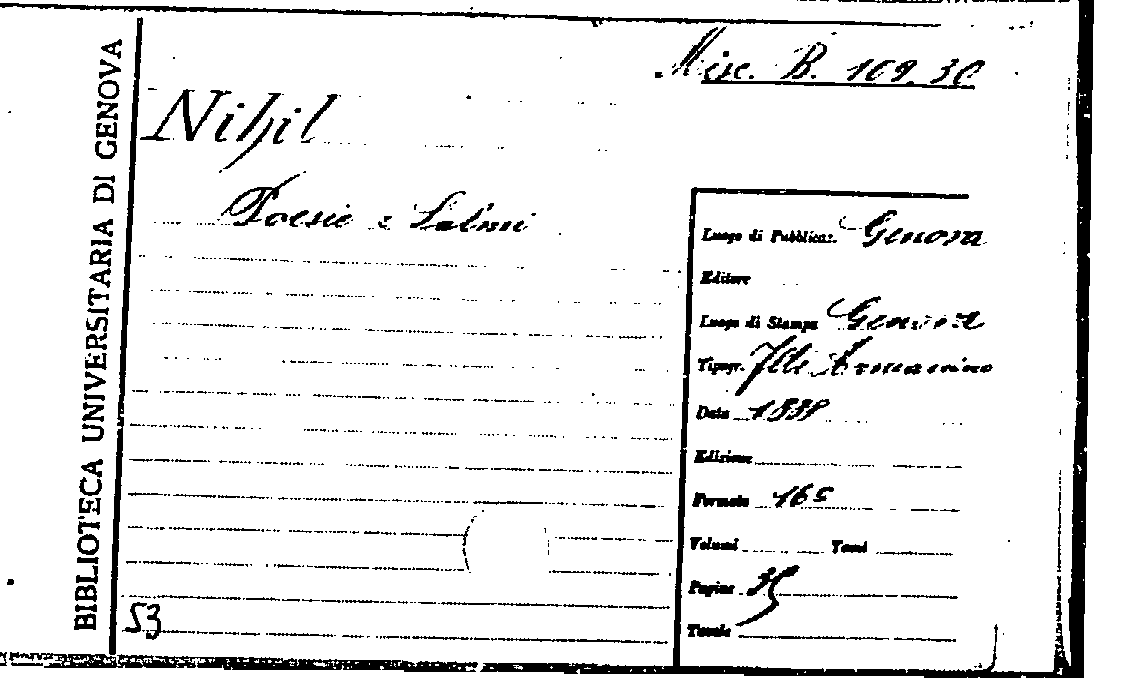 BIBLIOTECA UNIVERSITARIA DI GENOVA
Misc. B. 109. 30
Nihil
Poesie e Salmi
Luogo di Pubblicaz. Genova
Editore
Luogo di Stampa Genova
Tipogr. Flli Armanino
Data
Edizione
Formato 16°
Volumi Tomi
Pagine
Tavole
53